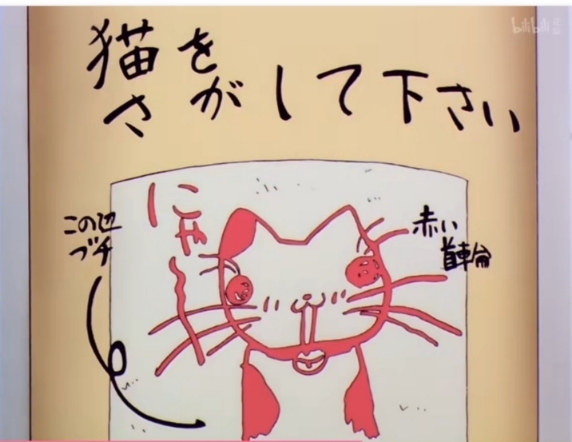 bilibili
猫を
さがして下さい
にゃ〜
この辺
ブチ
赤い
首輪